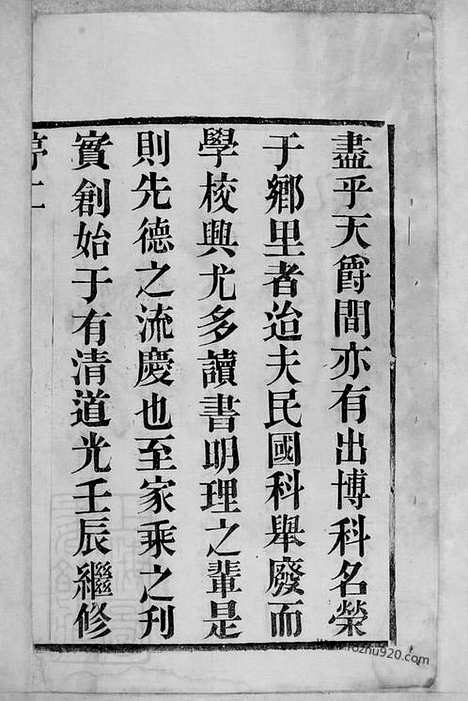 盡乎天爵間亦有出博科名榮
于鄉里者迨夫民國科舉廢而
學校興尤多讀書明理之輩是
則先德之流慶也至家乘之刊
實創始于有清道光壬辰繼修
www.fozhu920.com